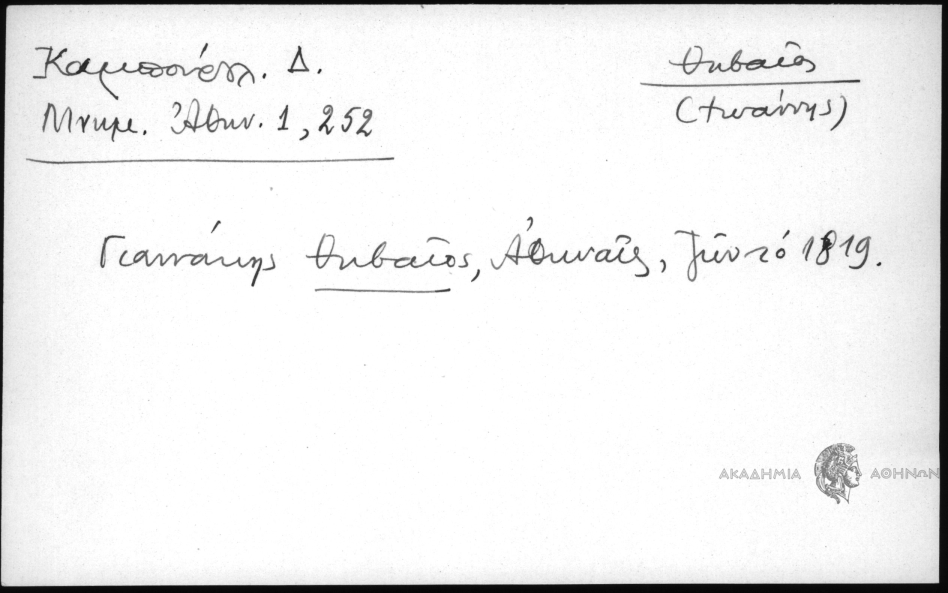 Καμπούρογλ. Δ.
Μνημ. Ἀθην. 1, 252
Θηβαῖος
(Ἰωάννης)
Γιαννάκης Θηβαῖος, Ἀθηναῖος, ζῶν τό 1819.
ΑΚΑΔΗΜΙΑ ΑΘΗΝΩΝ